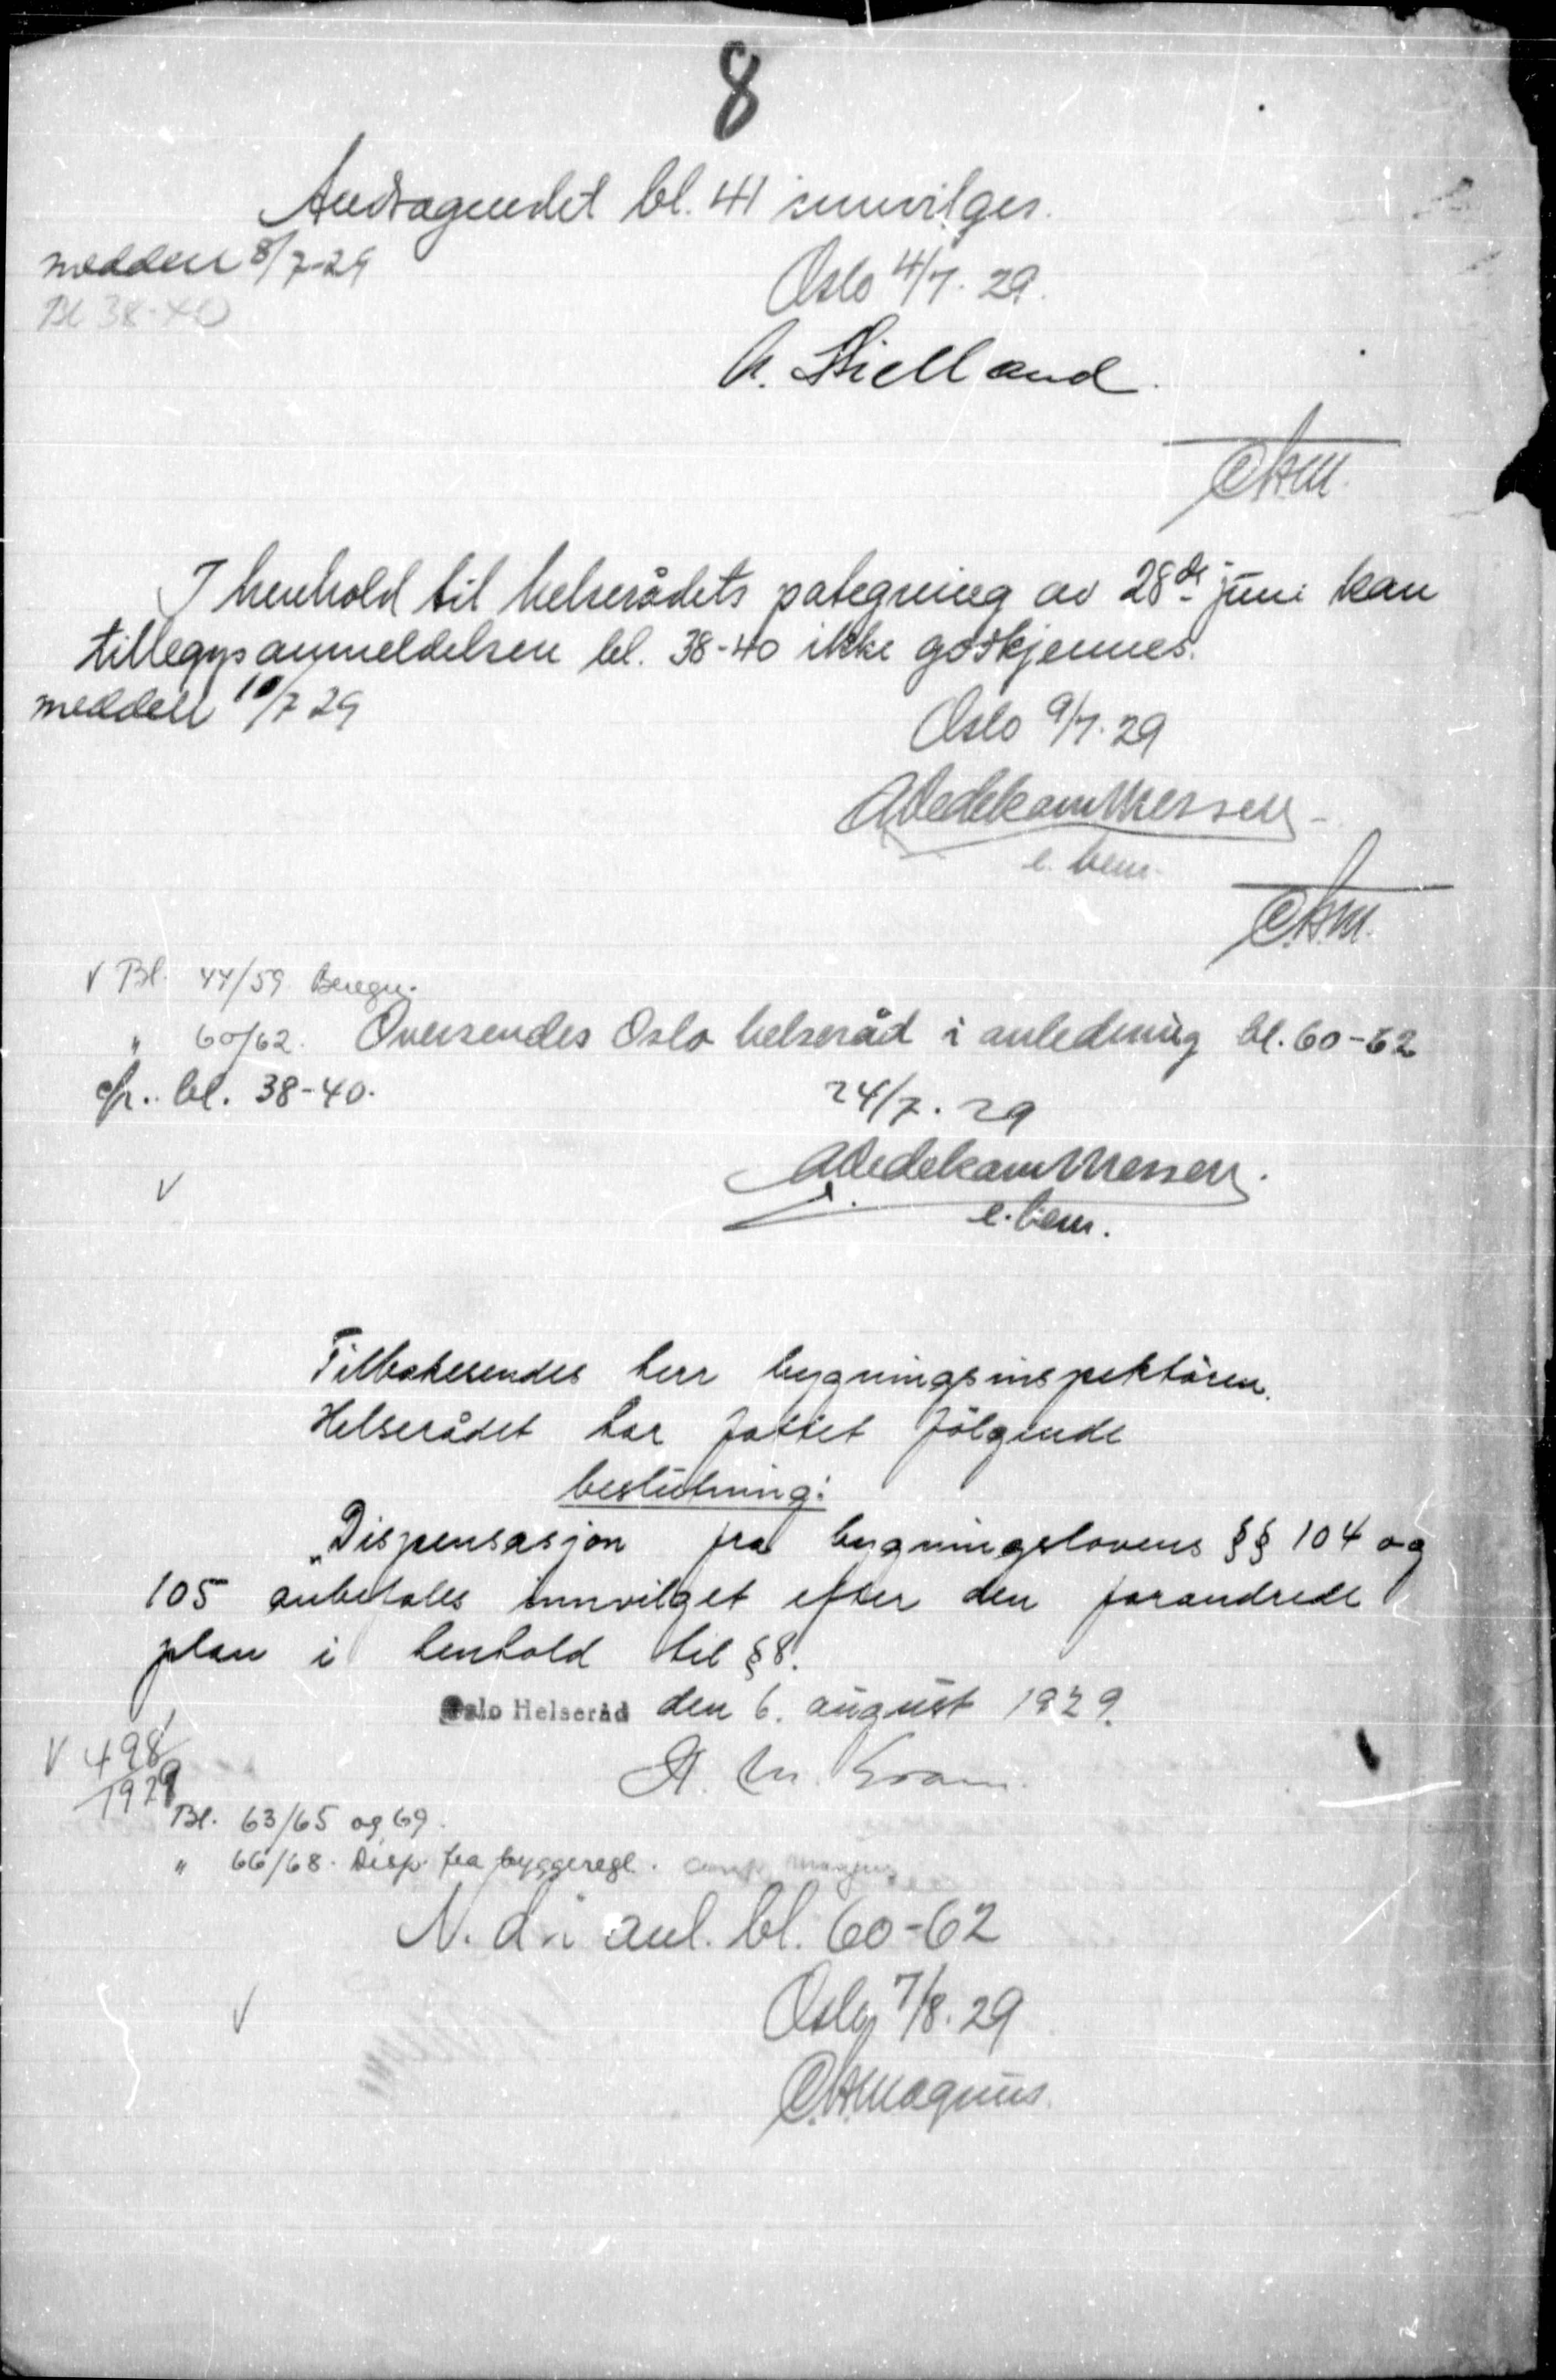 8
Andragendet bl. 41 innvilges.
meddelt 8/7-29
Bl 38-40
Oslo 4/7. 29.
A. Kielland.
C.A.M.
I henhold til helserådets pategning av 28de juni kan
tilleggsanmeldelsen bl. 38-40 ikke godkjennes.
meddelt 10/7 29
Oslo 9/7. 29
A Vedekam Messen
e. bem.
C.A.M.
V Bl. 44/59 Beregn.
" 60/62. Oversendes Oslo helseråd i anledning bl. 60-62
cfr. bl. 38-40.
24/7. 29
A Vedekam Messen.
e. bem.
V
Tilbakesendes herr bygningsinspektören.
Helserådet har fattet fölgende
beslutning:
„Dispensasjon fra bygningslovens §§ 104 og
105 anbefales innvilget efter den forandrede
plan i henhold til § 8.
Oslo Helseråd den 6. august 1929.
V 498/1929
Bl. 63/65 og 69.
" 66/68. Disp. fra byggeregl.
N. d. i anl. bl. 60-62
Oslo 7/8. 29
V
C.A. Magnus.